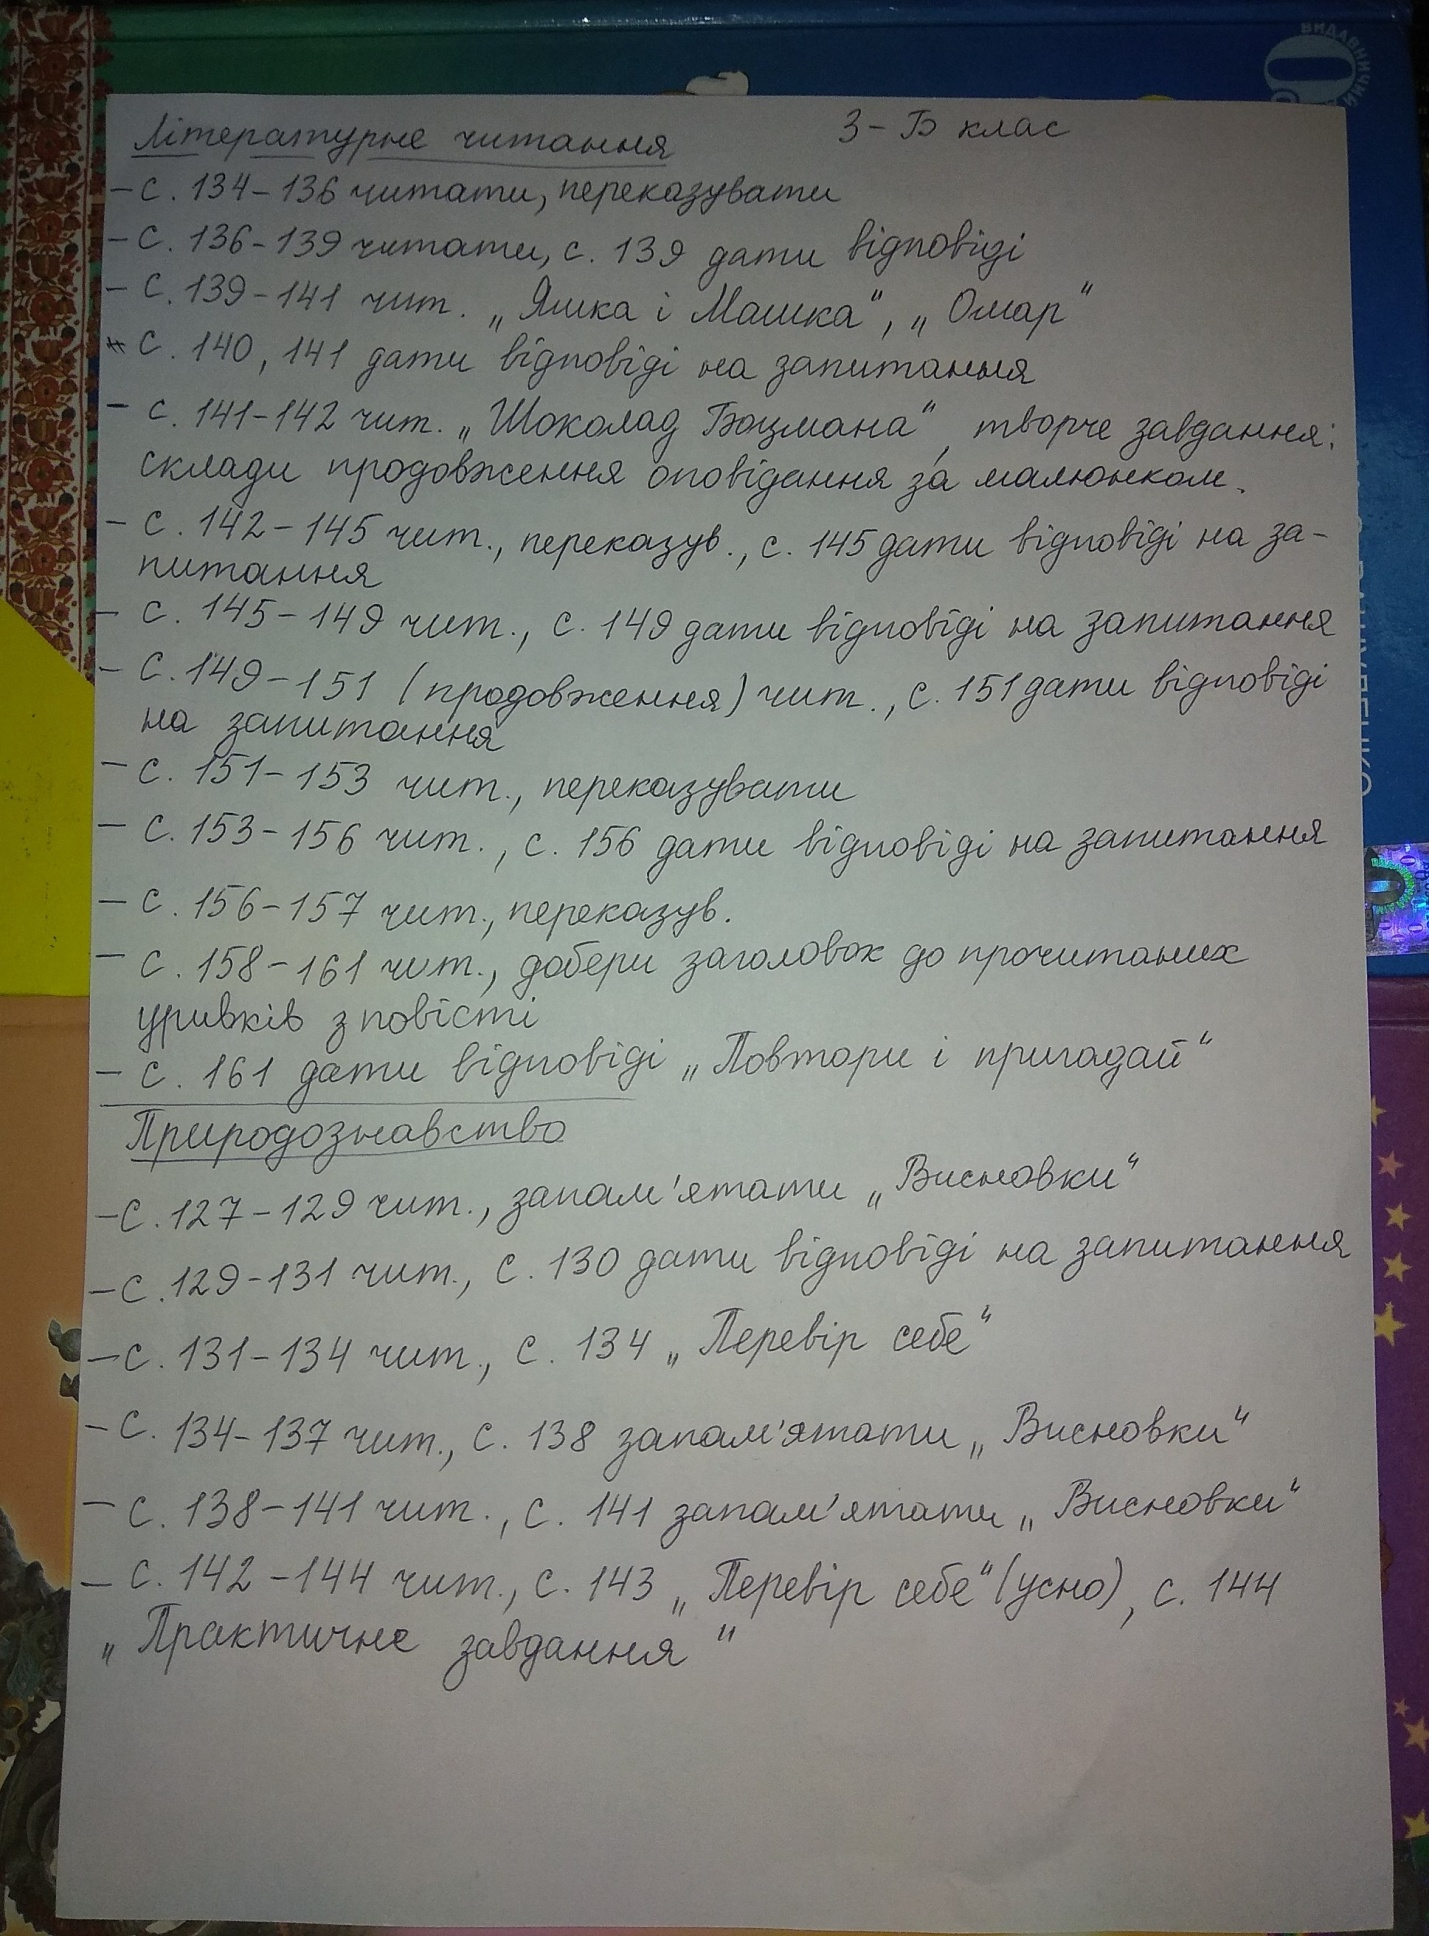 3-Б клас
Літературне читання
- с. 134-136 читати, переказувати
- с. 136-139 читати, с. 139 дати відповіді
- с. 139-141 чит. „Яшка і Машка“, „Омар“
* с. 140, 141 дати відповіді на запитання
- с. 141-142 чит. „Шоколад Боцмана“, творче завдання:
склади продовження оповідання за малюнком.
- с. 142-145 чит., переказув., с. 145 дати відповіді на за-
питання
- с. 145-149 чит., с. 149 дати відповіді на запитання
- с. 149-151 (продовження) чит., с. 151 дати відповіді
на запитання
- с. 151-153 чит., переказувати
- с. 153-156 чит., с. 156 дати відповіді на запитання
- с. 156-157 чит., переказув.
- с. 158-161 чит., добери заголовок до прочитаних
уривків з повісті
- с. 161 дати відповіді „Повтори і пригадай“
Природознавство
- с. 127-129 чит., запам'ятати „Висновки“
- с. 129-131 чит., с. 130 дати відповіді на запитання
- с. 131-134 чит., с. 134 „Перевір себе“
- с. 134-137 чит., с. 138 запам'ятати „Висновки“
- с. 138-141 чит., с. 141 запам'ятати „Висновки“
- с. 142-144 чит., с. 143 „Перевір себе“ (усно), с. 144
„Практичне завдання“